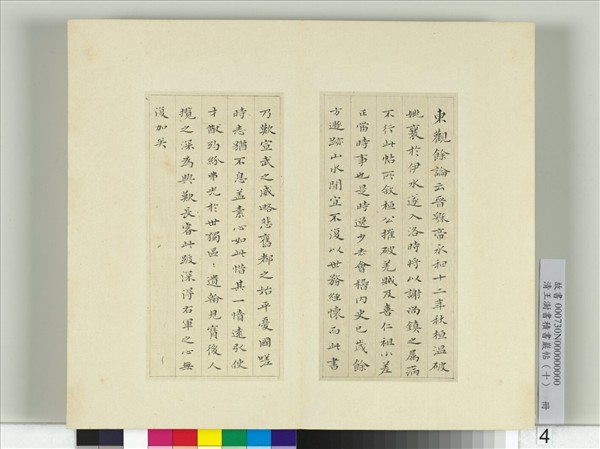 東觀餘論云晉穆帝永和十二年秋桓溫破
姚襄於伊水遂入洛時將以謝尚鎮之屬病
不行此帖所敘桓公摧破羌賊及喜仁祖小差
正當時事也是時逸少去會稽內史已歲餘
方遯跡山水間宜不復以世務經懷而此書
乃歎宣武之威略悲舊都之始平憂國嗟
時志猶不息蓋素心如此惜其一憤遠引使
才猷紛弗光於世獨區〻遺翰見寶後人
攬之深為興歎長睿此跋深得右軍之心無
復加矣
故書 000730N00000000
清王澍書積書巖帖(十) 冊
4